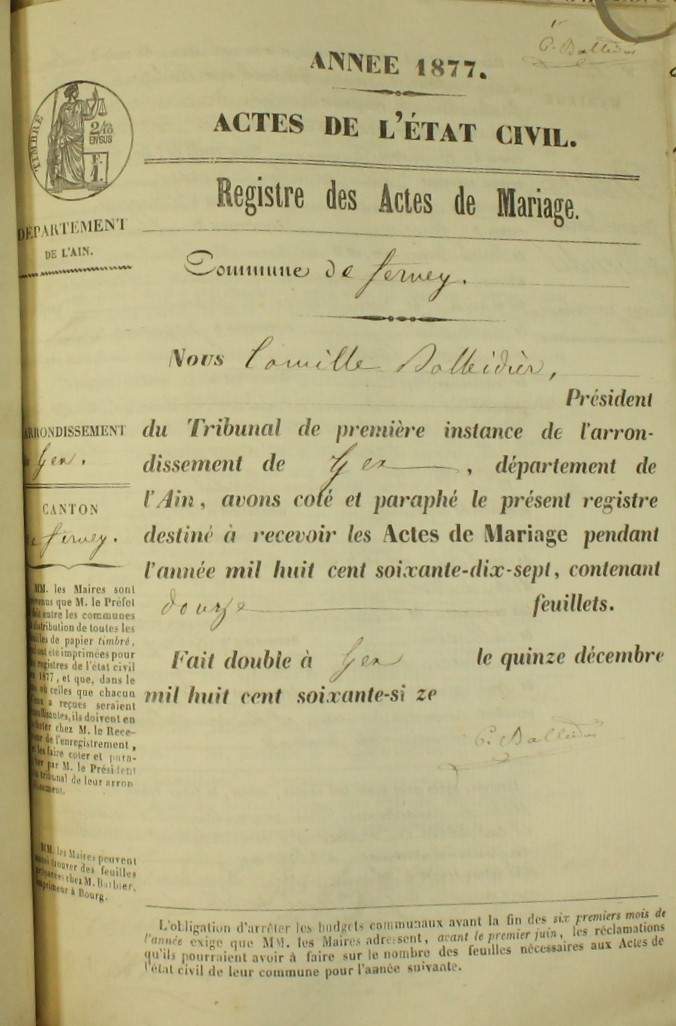 ANNEE 1877.
ACTES DE L'ÉTAT CIVIL.
Registre des Actes de Mariage.
TIMBRE
2/10
EN SUS
F.
1.
DEPARTEMENT
DE L'AIN.
Commune de Ferney.
Nous Camille Balleidier,
Président
ARRONDISSEMENT
Gex.
du Tribunal de première instance de l'arron-
dissement de Gex, département de
l'Ain, avons coté et paraphé le présent registre
destiné à recevoir les Actes de Mariage pendant
l'année mil huit cent soixante-dix-sept, contenant
douze feuillets.
Fait double à Gex le quinze décembre
mil huit cent soixante-si ze
CANTON
de Ferney.
MM. les Maires sont
que M. le Préfet
entre les communes
distribution de toutes les
de papier timbré,
ont été imprimées pour
registres de l'état civil
1877, et que, dans le
où celles que chacun
a reçues seraient
ils doivent en
chez M. le Rece-
de l'enregistrement,
les faire coter et para-
par M. le Président
tribunal de leur arron
MM. les Maires peuvent
trouver des feuilles
chez M. Barbier,
imprimeur à Bourg.
C. Balleidier
L'obligation d'arrêter les budgets communaux avant la fin des six premiers mois de
l'année exige que MM. les Maires adressent, avant le premier juin, les réclamations
qu'ils pourraient avoir à faire sur le nombre des feuilles nécessaires aux Actes de
l'état civil de leur commune pour l'année suivante.